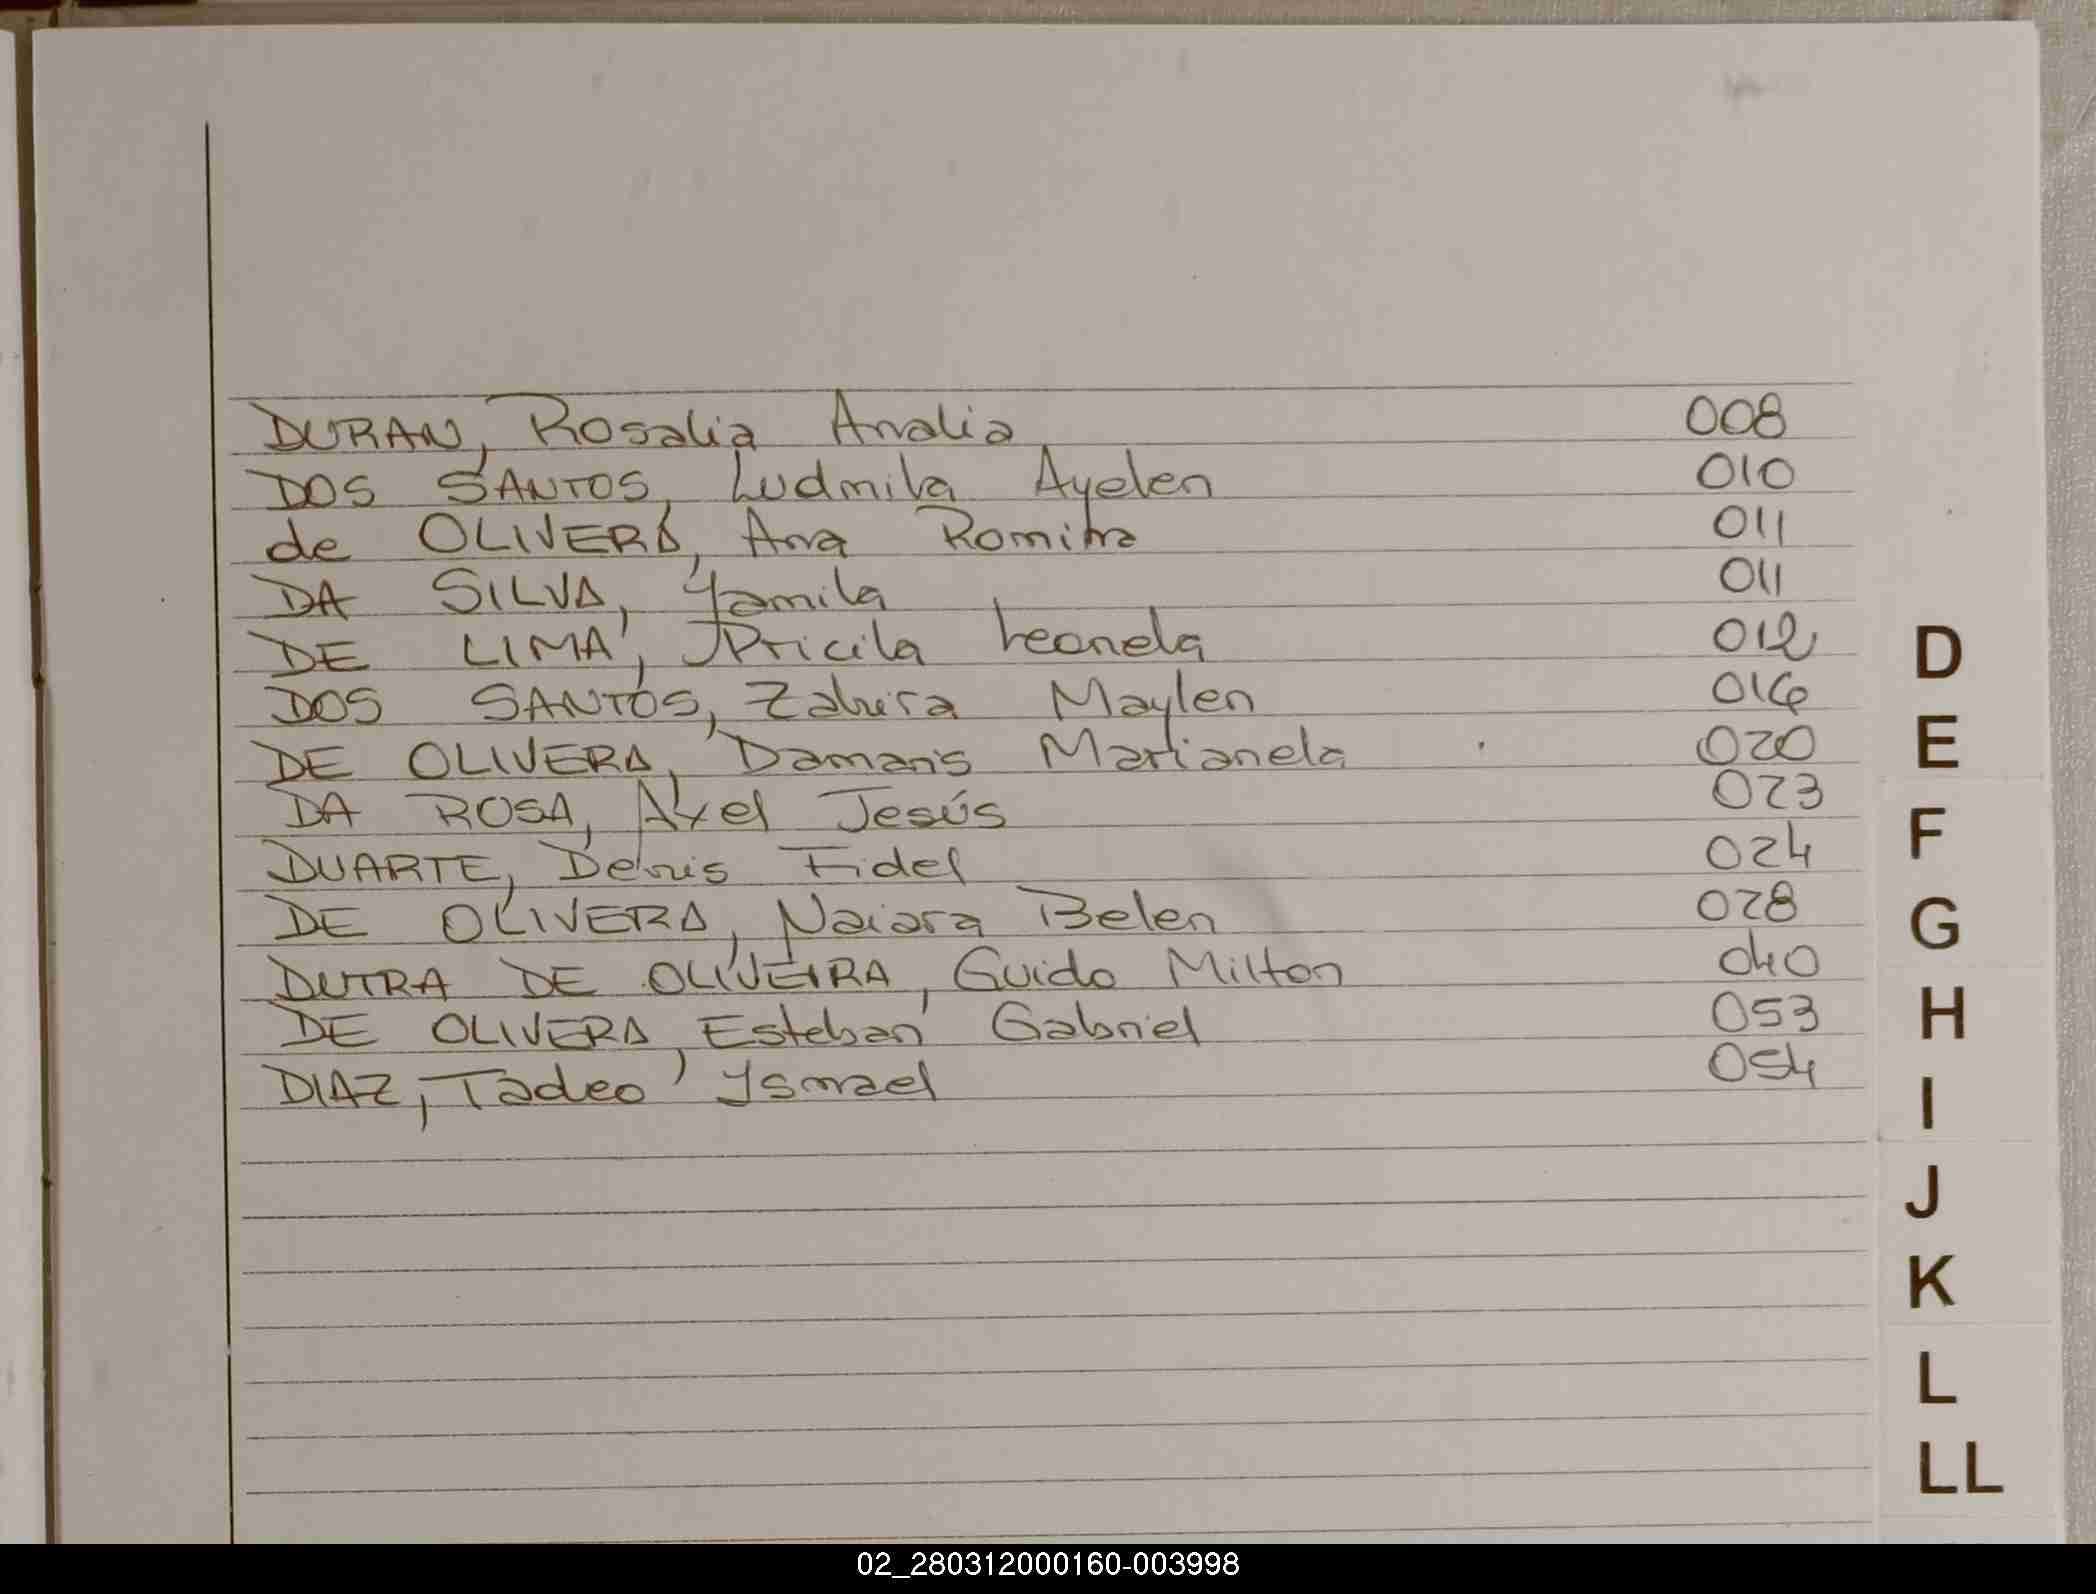 DURAN, Rosalia Analia 008
DOS SANTOS, Ludmila Ayelen 010
de OLIVERA, Ana Romina 011
DA SILVA, Yamila 011
DE LIMA, Pricila Leonela 012
DOS SANTOS, Zahira Maylen 016
DE OLIVERA, Damaris Marianela 020
DA ROSA, Axel Jesús 023
DUARTE, Denis Fidel 024
DE OLIVERA, Naiara Belen 028
DUTRA DE OLIVEIRA, Guido Milton 040
DE OLIVERA, Esteban Gabriel 053
DIAZ, Tadeo Ysmael 054
D
E
F
G
H
I
J
K
L
LL
02_280312000160-003998